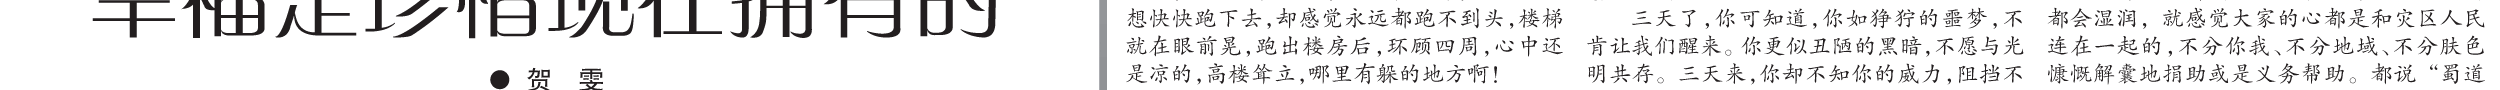 幸福是珍惜现在拥有的
●贺
想快快跑下去,却感觉永远都跑不到头,楼梯
就在眼前晃,跑出楼房后,环顾四周,心中还
是凉的,高楼耸立,哪里有躲的地方啊!
三天了,你可知道,你如狰狞的噩梦,不
肯让我们醒来。你更似丑陋的黑暗,不愿与光
明共存。三天来,你却不知你的威力,阻挡不
都会湿润，就感觉大家的心都是和灾区人民
连在一起的,不分你我、不分地域、不分肤色
慷慨解囊地捐助或是义务帮助。都说“蜀道